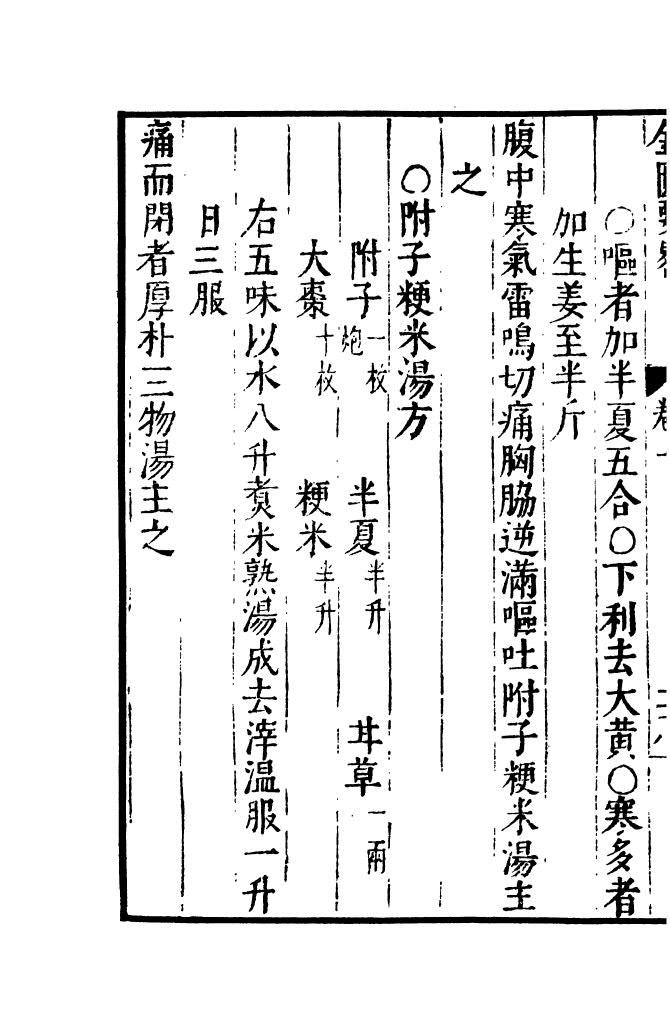 金匱要畧 卷一
○嘔者加半夏五合○下利去大黃○寒多者
加生姜至半斤
腹中寒氣雷鳴切痛胸脇逆滿嘔吐附子粳米湯主
之
○附子粳米湯方
附子一枚炮 半夏半升 甘草一兩
大棗十枚 粳米半升
右五味以水八升煑米熟湯成去滓溫服一升
日三服
痛而閉者厚朴三物湯主之